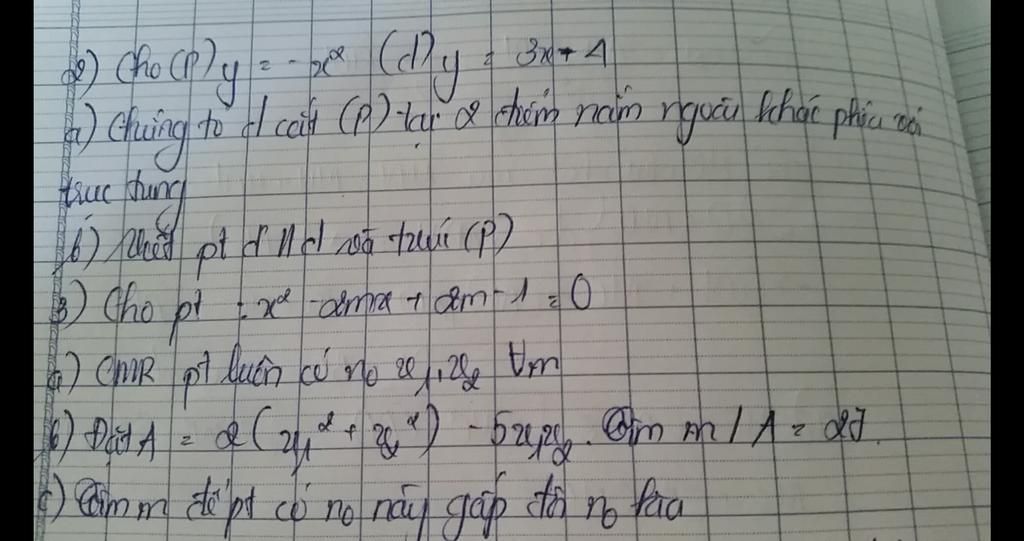 2) Cho (P) y = -x² (d) y = 3x - 4
a) Chứng tỏ d cắt (P) tại 2 điểm nằm ngoài khác phía với
trục tung
b) Viết pt d' // d và tx với (P)
3) Cho pt : x² - 2mx + 2m - 1 = 0
a) CMR pt luôn có no x₁, x₂ ∀m
b) Đặt A = 2(x₁² + x₂²) - 5x₁x₂. Tìm m / A = 27.
c) Tìm m để pt có no này gấp đôi no kia